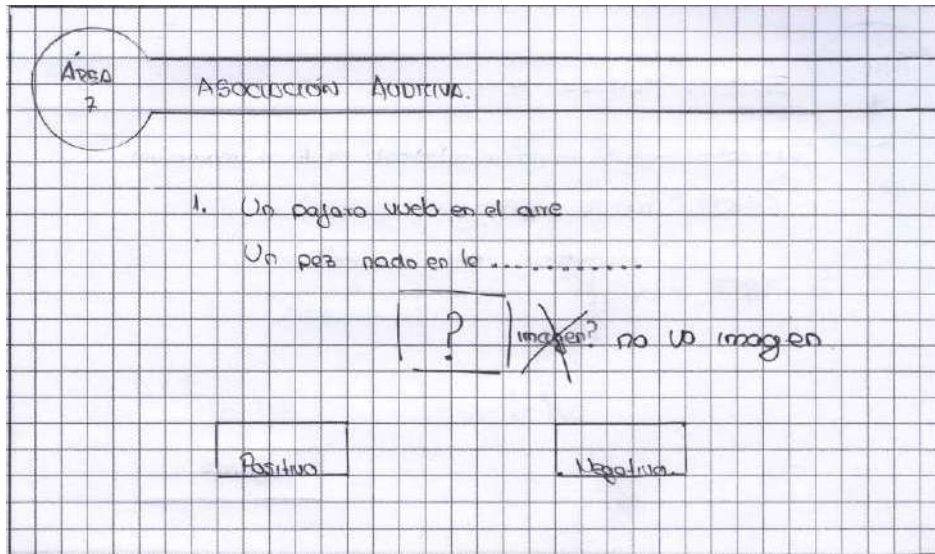 ÁREA
7
ASOCIACIÓN AUDITIVA.
1. Un pajaro vuela en el aire
Un pez nada en le ............
?
imagen? no va imagen
Positivo
Negativo.